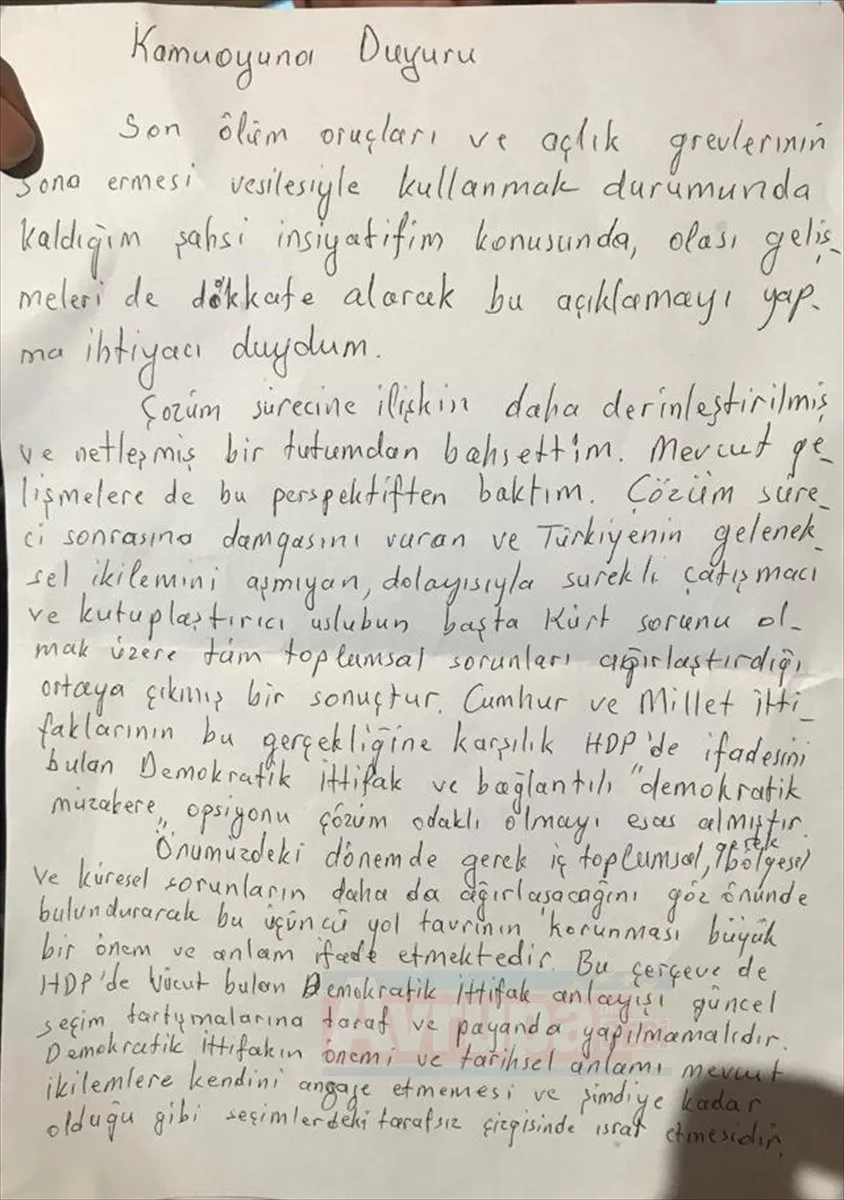 Kamuoyuna Duyuru
Son ölüm oruçları ve açlık grevlerinin
sona ermesi vesilesiyle kullanmak durumunda
kaldığım şahsi insiyatifim konusunda, olası geliş-
meleri de dikkate alarak bu açıklamayı yap-
ma ihtiyacı duydum.
Çozüm sürecine ilişkin daha derinleştirilmiş
ve netleşmiş bir tutumdan bahsettim. Mevcut ge-
lişmelere de bu perspektiften baktım. Çözüm süre-
ci sonrasına damgasını vuran ve Türkiyenin gelenek-
sel ikilemini aşmıyan, dolayısıyla surekli çatışmacı
ve kutuplaştırıcı uslubun başta Kürt sorunu ol-
mak üzere tüm toplumsal sorunları ağırlaştırdığı
ortaya çıkmış bir sonuçtur. Cumhur ve Millet İtti-
faklarının bu gerçekliğine karşılık HDP'de ifadesini
bulan Demokratik İttifak ve bağlantılı "demokratik
müzakere„ opsiyonu çözüm odaklı olmayı esas almıştır.
Önumüzdeki dönemde gerek iç toplumsal, gerek bölgesel
ve küresel sorunların daha da ağırlaşacağını göz önünde
bulundurarak bu üçüncü yol tavrının korunması büyük
bir önem ve anlam ifade etmektedir. Bu çerçeve de
HDP'de Vücut bulan Demokratik İttifak anlayışı güncel
seçim tartışmalarına taraf ve payanda yapılmamalıdır.
Demokratik İttifakın önemi ve tarihsel anlamı mevcut
ikilemlere kendini angaje etmemesi ve şimdiye kadar
olduğu gibi seçimlerdeki tarafsız çizgisinde ısrar etmesidir.
Avrupa